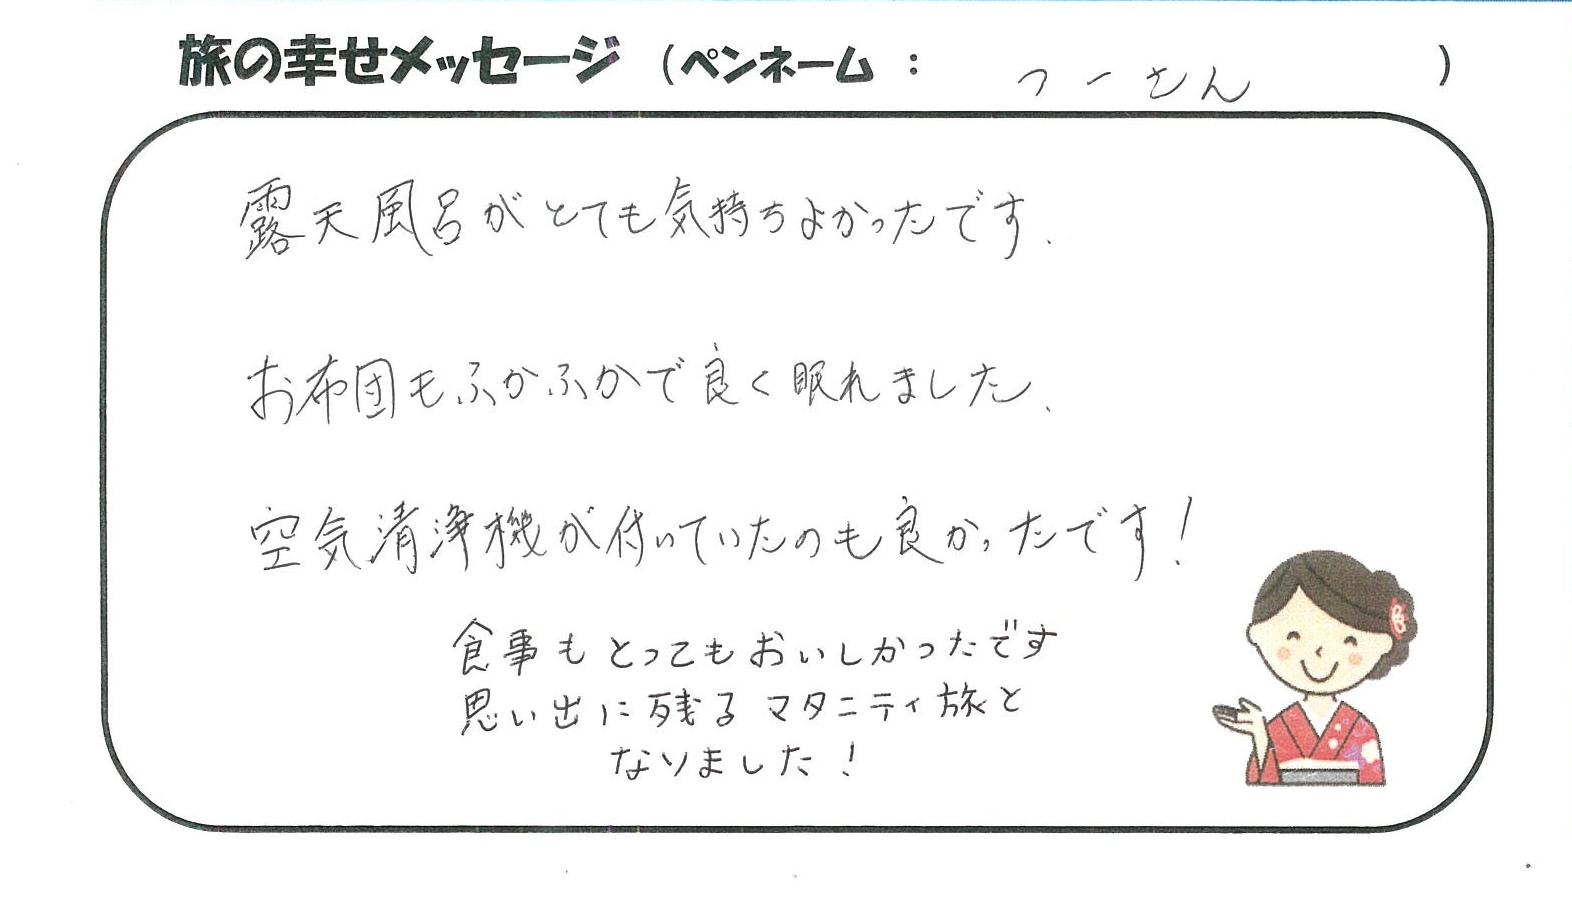 旅の幸せメッセージ (ペンネーム : つーむん )
露天風呂がとても気持ちよかったです.
お布団もふかふかで良く眠れました.
空気清浄機が付いていたのも良かったです!
食事もとってもおいしかったです
思い出に残るマタニティ旅と
なりました!